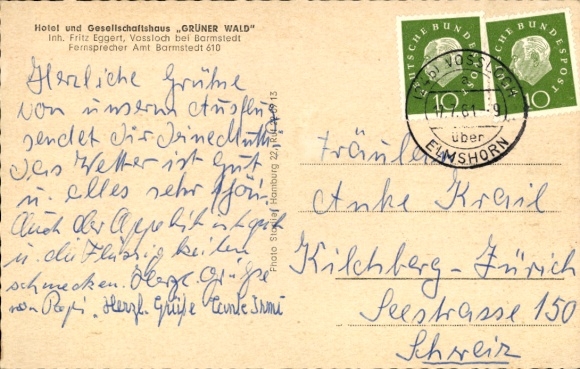 Hotel und Gesellschaftshaus „GRÜNER WALD"
Inh. Fritz Eggert, Vossloch bei Barmstedt
Fernsprecher Amt Barmstedt 610
Herzliche Grüße
von unserm Ausflug
sendet Dir Deine Mutti
Das Wetter ist gut
u. alles sehr schön.
Auch der Appetit ist gut
u. die Flüssigkeiten
schmecken. Herzl. Grüße
von Papi, Herzl. Grüße Tante Irmi
Photo Hamburg 22,
DEUTSCHE BUNDESPOST
10
DEUTSCHE BUNDESPOST
10
VOSSLOCH
über
ELMSHORN
Fräulein
Anke Krail
Kilchberg-Zürich
Seestrasse 150
Schweiz